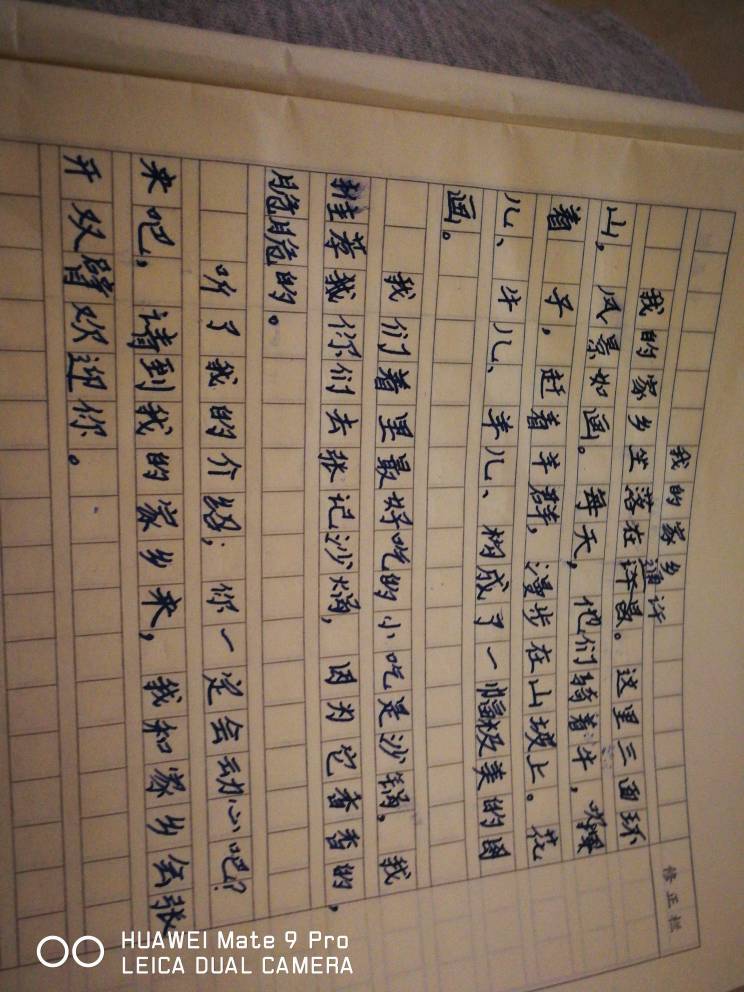 我的家乡
通许
我的家乡坐落在。这里三面环
山，风景如画。每天，他们骑着牛，
着 子，赶着羊群，漫步在山坡上。花
儿、牛儿、羊儿、构成了一幅极美的图
画。
我们着里最好吃的小吃是沙锅。我
荐我你们去张记沙锅，因为它香香的，
脆脆的。
听了我的介绍，你一定会动心吧？
来吧，请到我的家乡来，我和家乡会张
开双臂欢迎你。
修正栏
HUAWEI Mate 9 Pro
LEICA DUAL CAMERA